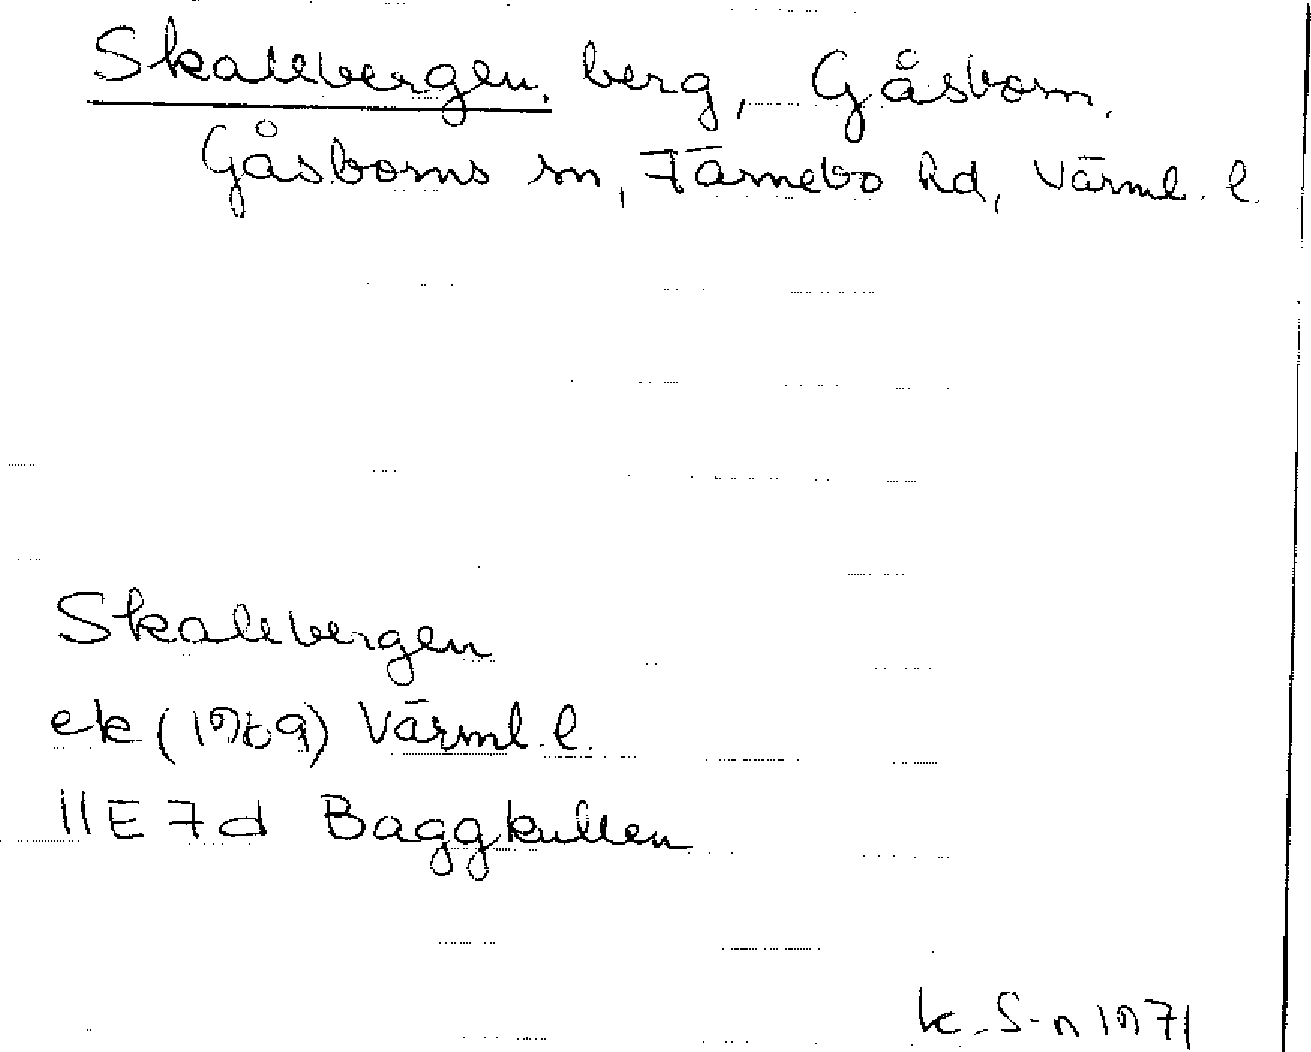 Skallbergen, berg, Gåsborn,
Gåsborns sn, Färnebo hd, Värml. l.
Skallbergen
ek (1969) Värml. l.
11E 7d Baggkullen
k. S-n 1971